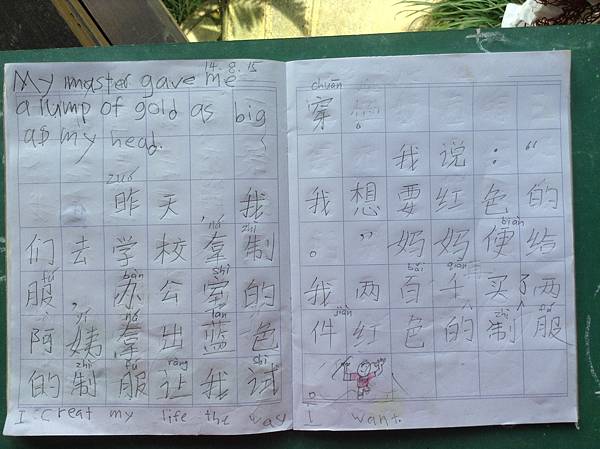 14.8.15
My master gave me
a lump of gold as big
as my head.
zuó
昨天 我
ná zhì
们去学校拿制
fú bàn shì
服，办公室的
yí ná lán
阿姨拿出蓝色
zhì fú ràng shì
的制服让我试
I creat my life the way
chuān
穿。
我说：“
我想要红色的
biàn
。”妈妈便给
bǎi qiān
我两百千买了两
jiàn zhì fú
件红色的制服
I want.